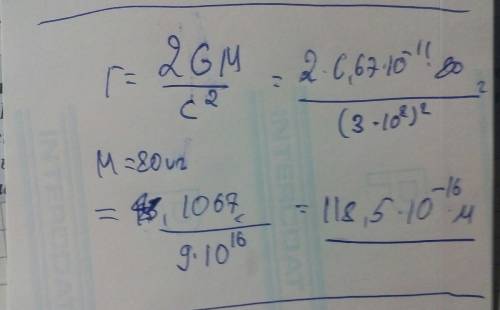 r = 2GM / c² = 2·6,67·10⁻¹¹·80 / (3·10⁸)² =
M = 80 кг
= 1067 / 9·10¹⁶ = 118,5·10⁻¹⁶ м